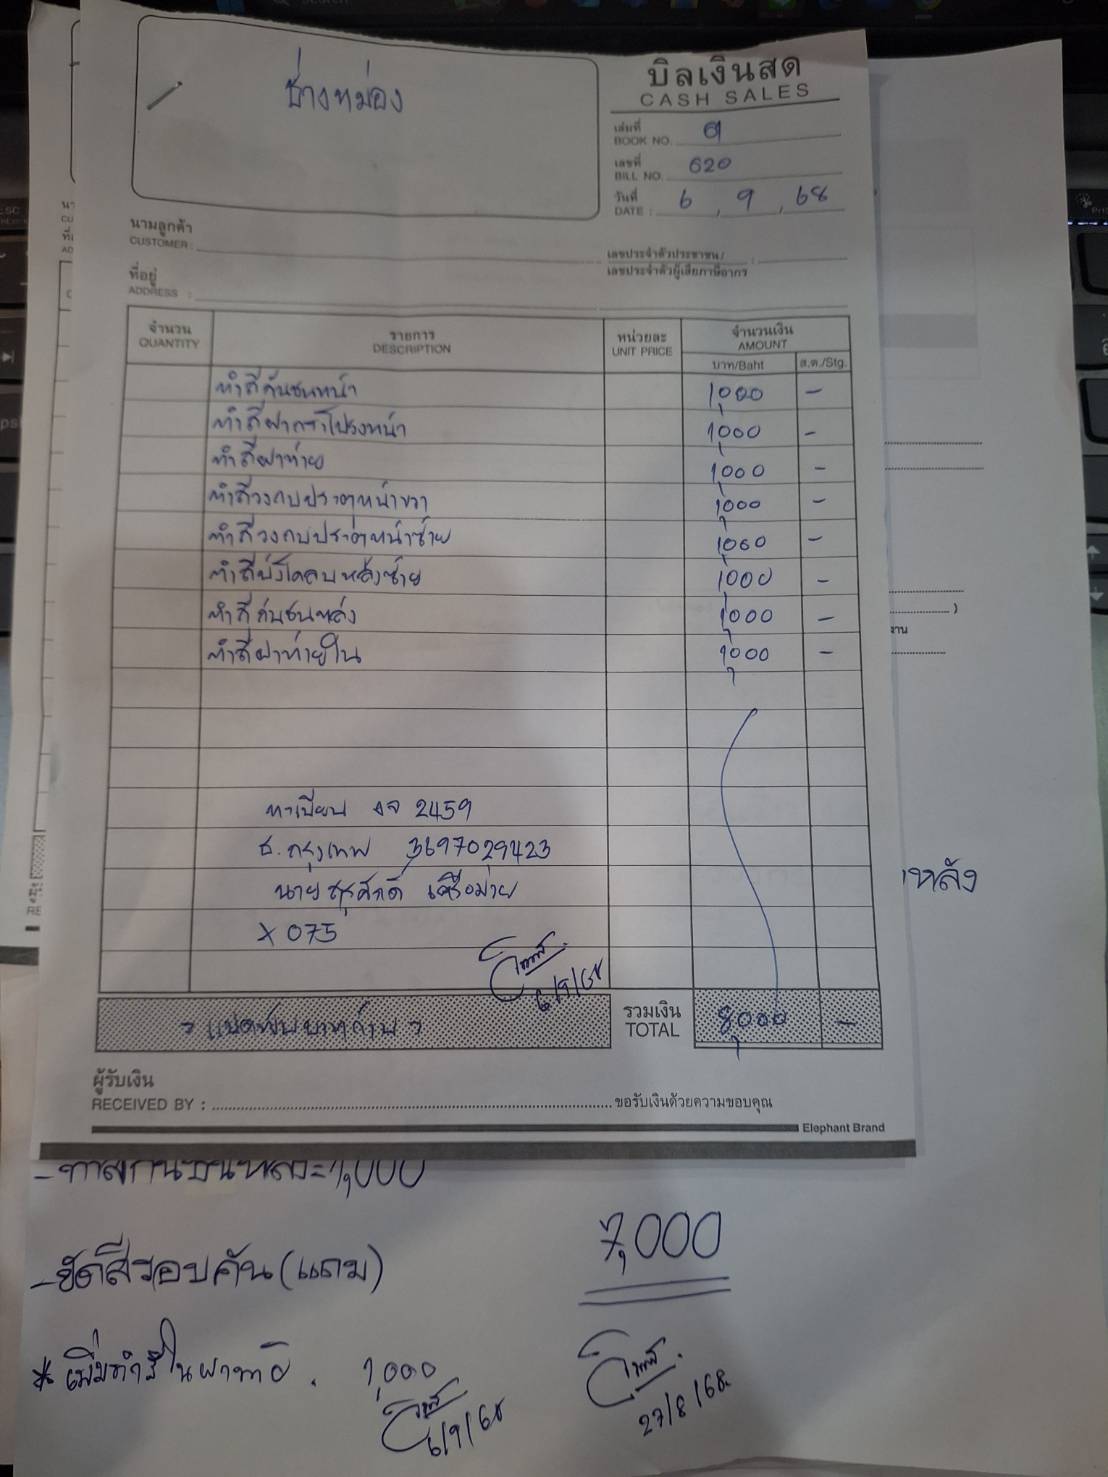 ช่างหม่อง
บิลเงินสด
CASH SALES
เล่มที่
BOOK NO. 9
เลขที่
BILL NO. 620
วันที่
DATE : 6 , 9 , 68
นามลูกค้า
CUSTOMER :
เลขประจำตัวประชาชน/
เลขประจำตัวผู้เสียภาษีอากร :
ที่อยู่
ADDRESS :
จำนวน รายการ หน่วยละ จำนวนเงิน
QUANTITY DESCRIPTION UNIT PRICE AMOUNT
บาท/Baht ส.ต./Stg.
ทำสีกันชนหน้า 1,000 -
ทำสีฝากระโปรงหน้า 1,000 -
ทำสีฝาท้าย 1,000 -
ทำสีวงกบประตูหน้าขวา 1,000 -
ทำสีวงกบประตูหน้าซ้าย 1,000 -
ทำสีบังโคลนหลังซ้าย 1,000 -
ทำสีกันชนหลัง 1,000 -
ทำสีฝาท้ายใน 1,000 -
ทะเบียน 2459
ธ.กรุงเทพ 3697029423
นาย
X 075
6/9/68
แปดพันบาทถ้วน รวมเงิน 8,000 -
TOTAL
ผู้รับเงิน
RECEIVED BY : ขอรับเงินด้วยความขอบคุณ
Elephant Brand
หลัง
งาน
- ทำสีกันชนหลัง = 1,000
7,000
- ขัดสีรอบคัน (แถม)
* เพิ่มทำสีในฝาท้าย . 1,000
6/9/68
27/8/68